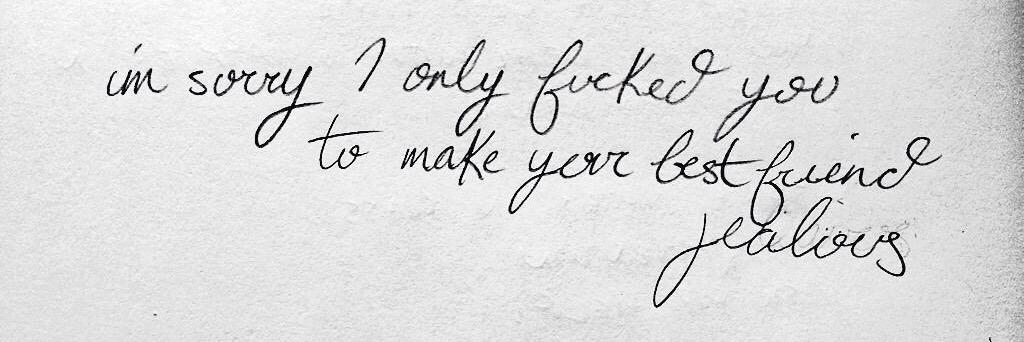 im sorry I only fucked you
to make your best friend
jealous